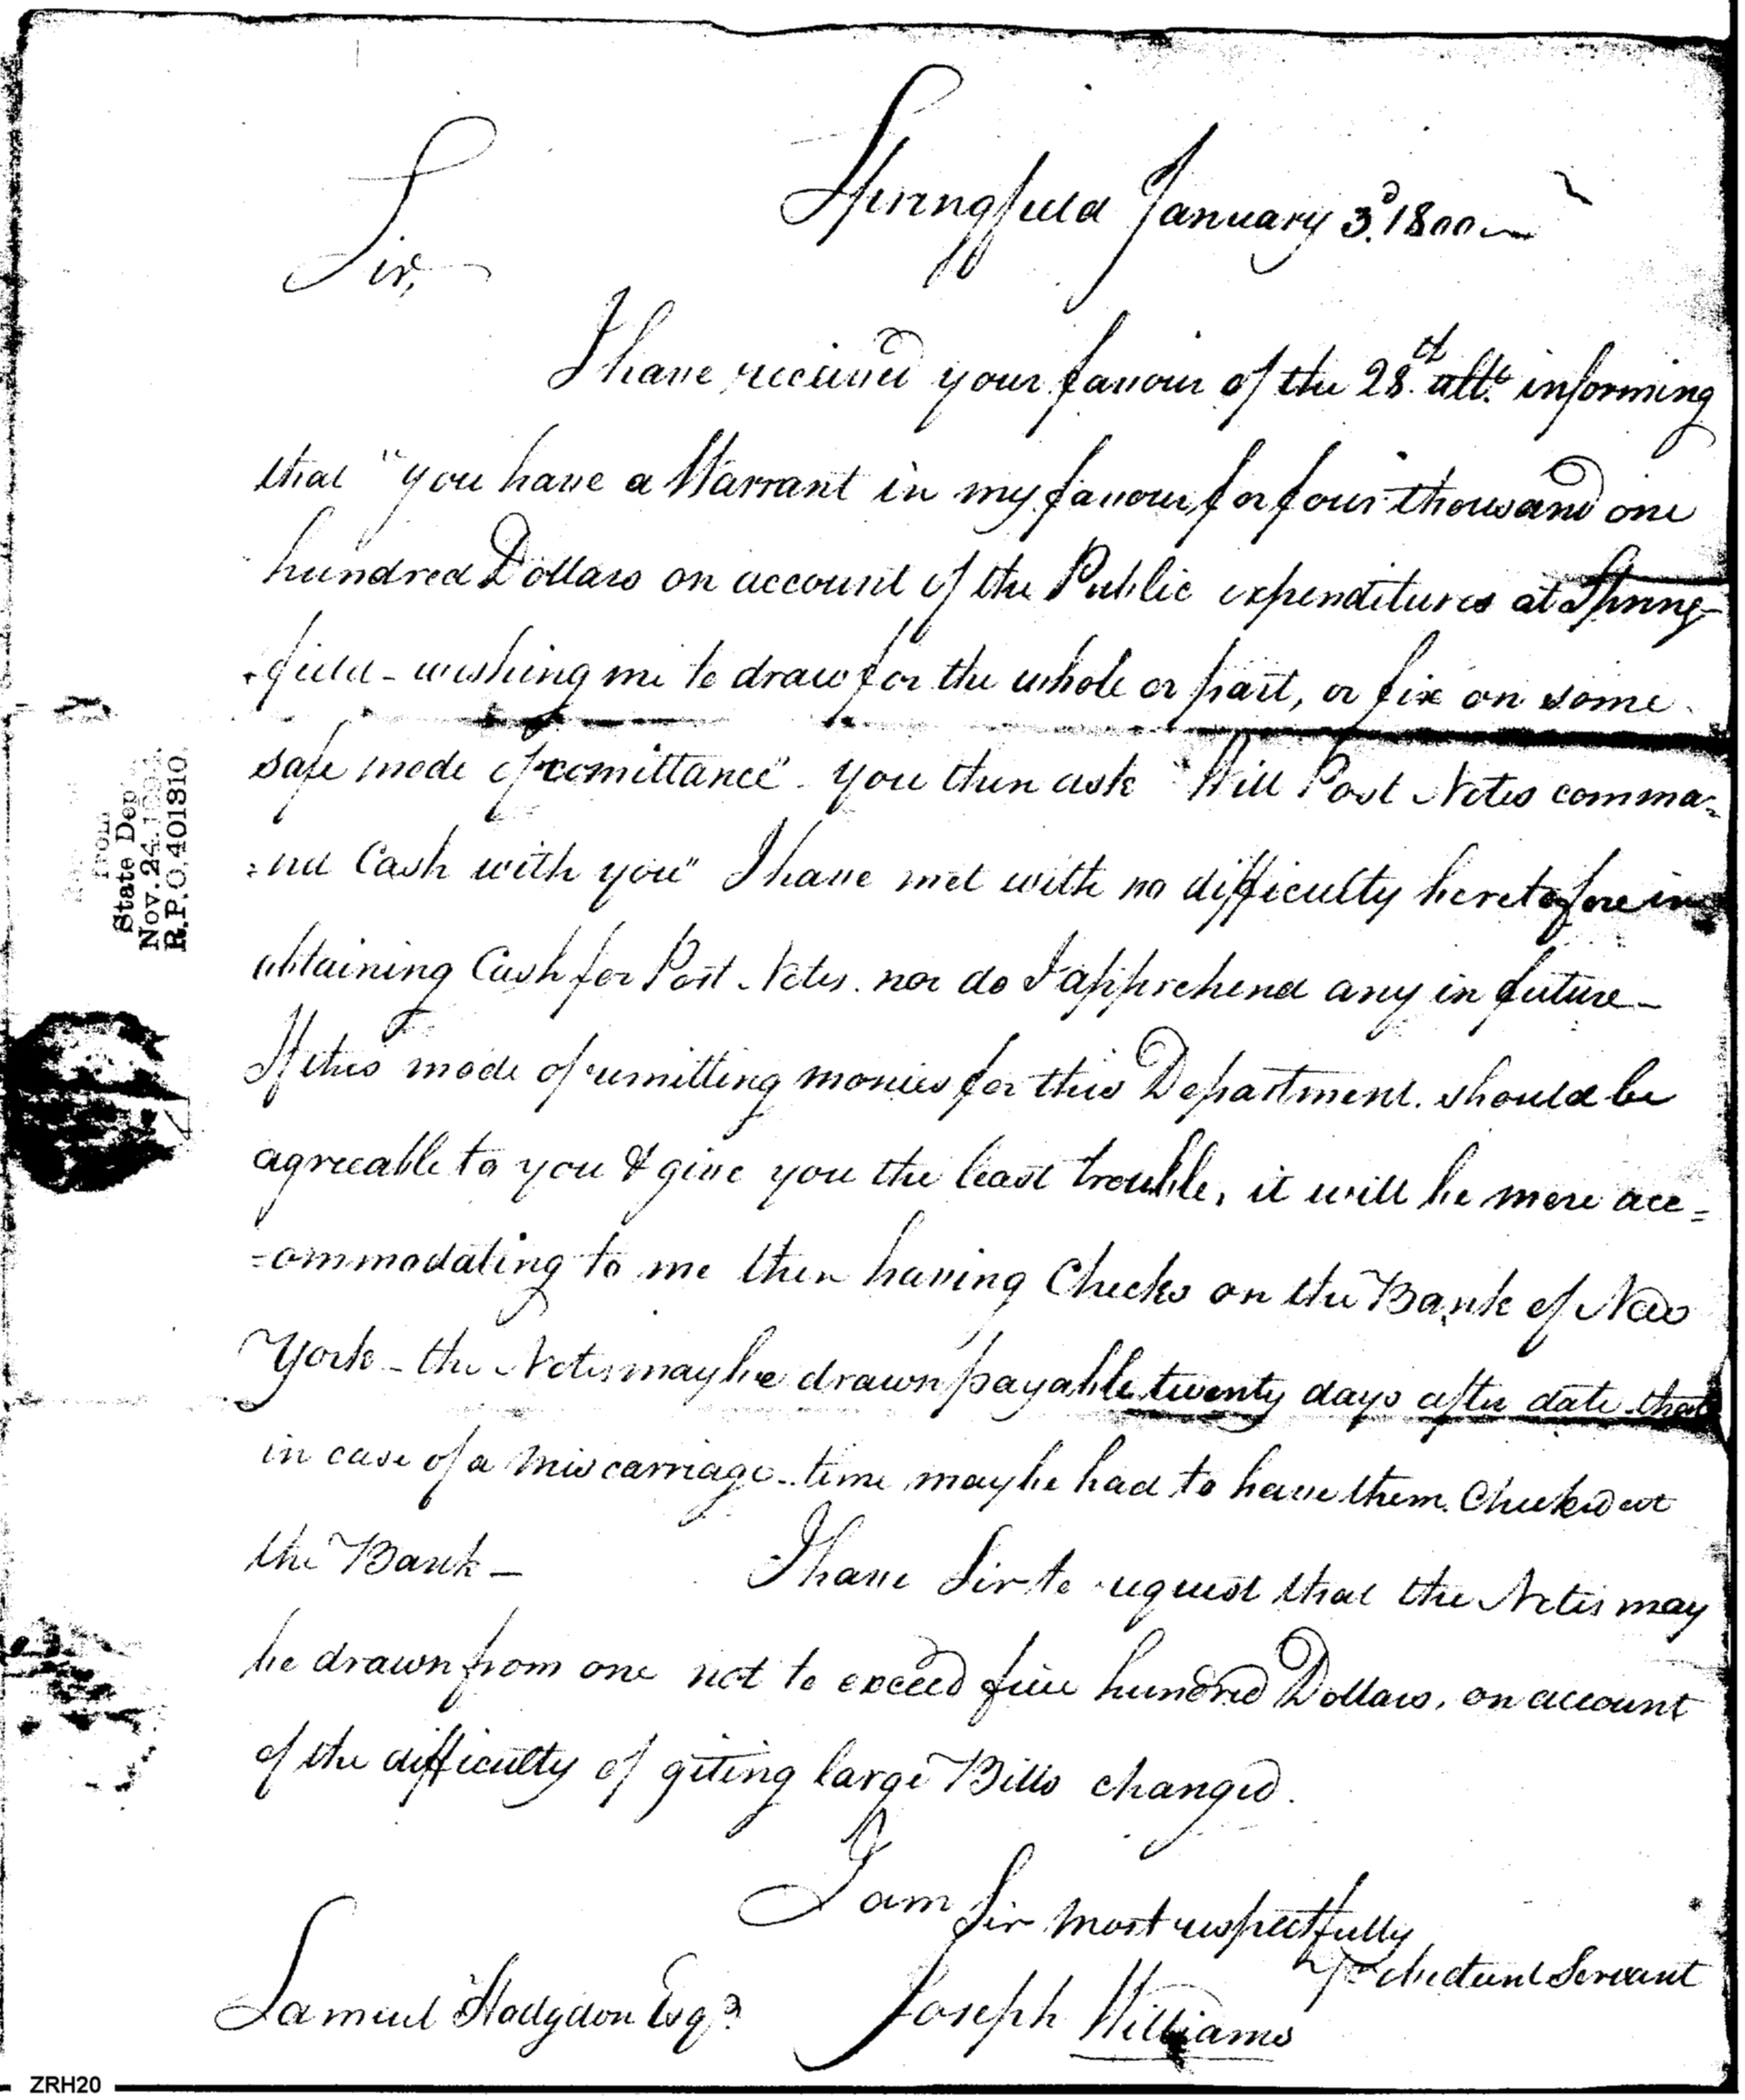 Springfield January 3d. 1800
Sir,
I have received your favour of the 28th ulto. informing
that "you have a Warrant in my favour for four thousand one
hundred Dollars on account of the Public expenditures at Spring-
-field - wishing me to draw for the whole or part, or fix on some
safe mode of remittance" you then ask "Will Post Notes comma-
=nd Cash with you" I have met with no difficulty heretofore in
obtaining Cash for Post Notes. nor do I apprehend any in future -
If this mode of remitting monies for this Department. should be
agreeable to you & give you the least trouble, it will be more acc=
=ommodating to me then having Checks on the Bank of New
York - the Notes may be drawn payable twenty days after date that
in case of a miscarriage - time may be had to have them Checked at
the Bank - I have Sir to request that the Notes may
be drawn from one not to exceed five hundred Dollars, on account
of the difficulty of giting large Bills changed.
I am
Sir most respectfully
Yr obedient Servant
Samuel Hodgdon Esqr. Joseph Williams
from
State Dep
Nov. 24.
R.P.O. 401310
ZRH20